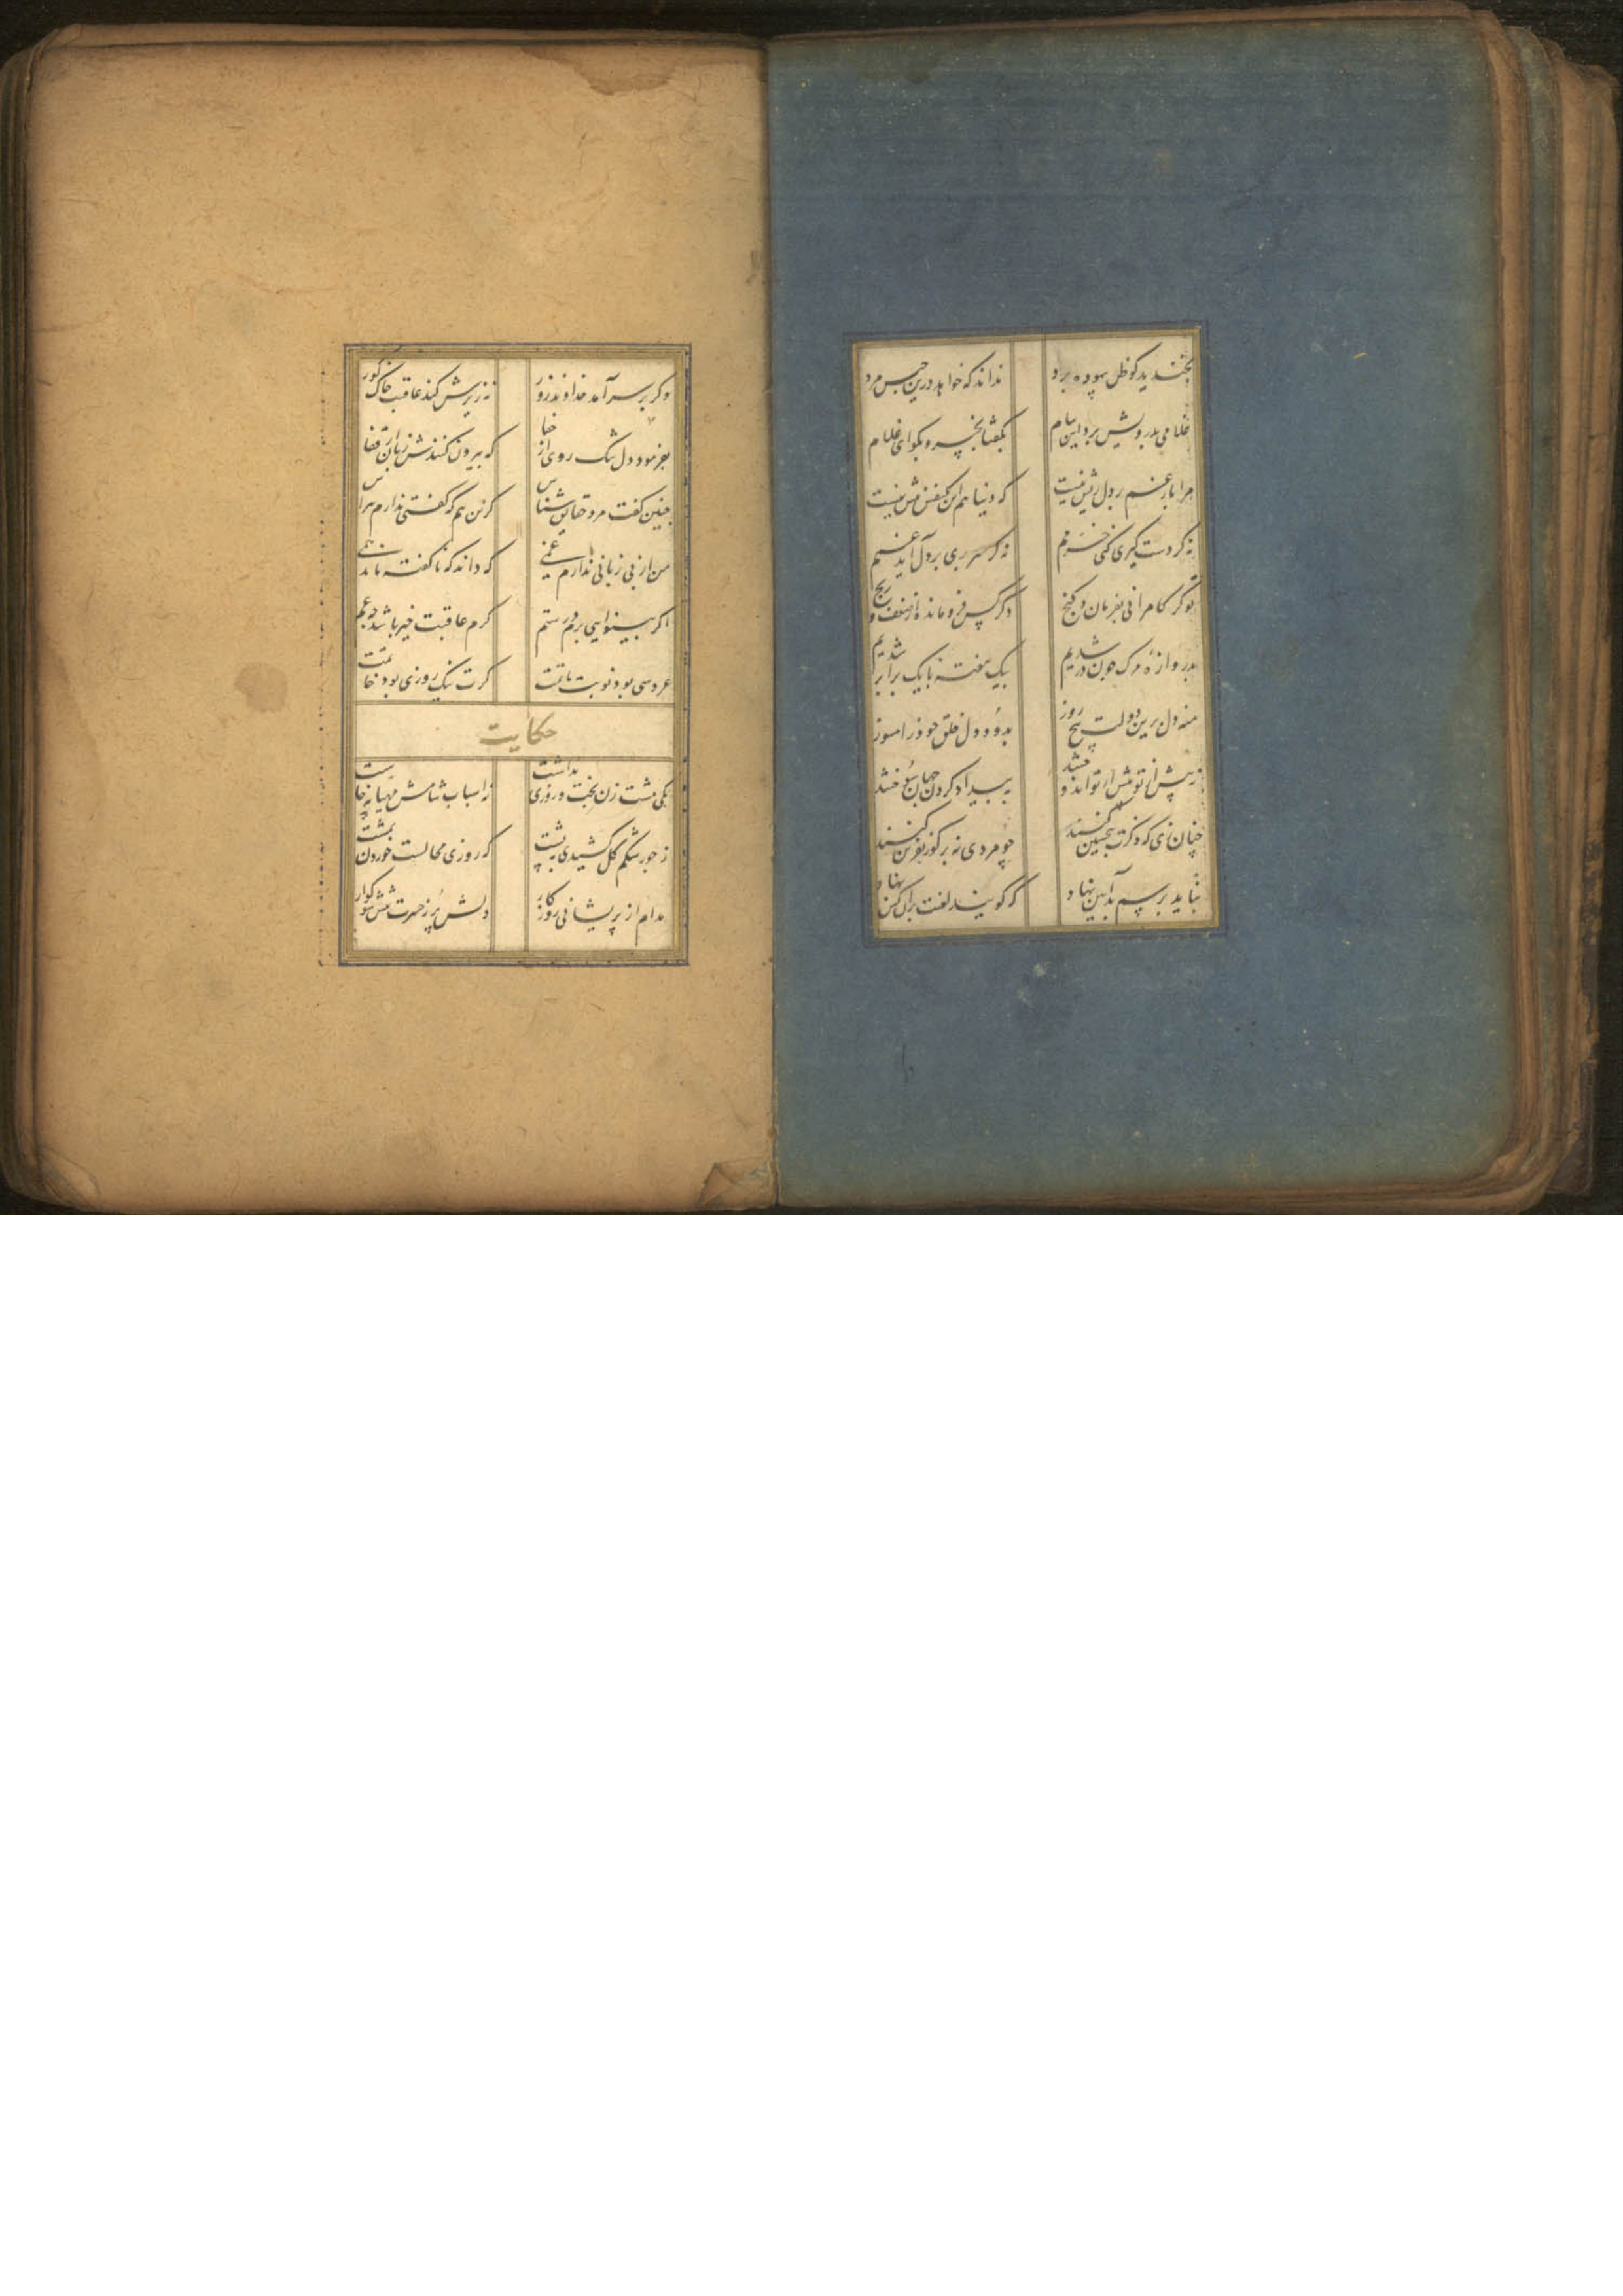 بخندید کو ظن بیهوده برد
نداند که خواهد درین حبس مرد
غلامی بدرویش برد این پیام
بگفتا بخسرو بگو ای غلام
مرا بار غم بر دل ریش نیست
که دنیا هم این یکنفس بیش نیست
نه گر دست گیری کنی خرمم
نه گر سر بری بر دل آید غمم
تو گر کامرانی بفرمان و گنج
دگر کس فرو مانده از ضعف و رنج
بدروازه مرگ چون در شدیم
بیک هفته با یک برابر شدیم
منه دل برین دولت پنج روز
بدود دل خلق خود را مسوز
نه پیش از تو بیش از تو اندوختند
به بیداد کردن جهان سوختند
چنان زی که ذکرت بتحسین کنند
چو مردی نه بر گور نفرین کنند
نباید برسم بد آیین نهاد
که گویند لعنت بر آن کین نهاد
وگر بر سر آمد خداوند زور
نه زیرش کند عاقبت خاک گور
بفرمود دل تنگ روی از جفا
که بیرون کنندش زبان از قفا
چنین گفت مرد حقایق شناس
کزین هم که گفتی ندارم هراس
من از بی زبانی ندارم غمی
که داند که ناگفته داند همی
اگر بینوایی برم ور ستم
گرم عاقبت خیر باشد چه غم
عروسی بود نوبت ماتمت
گرت نیک روزی بود خاتمت
حکایت
یکی مشت زن بخت و روزی نداشت
نه اسباب شامش مهیا نه چاشت
ز جور شکم گل کشیدی به پشت
که روزی محالست خوردن بمشت
مدام از پریشانی روزگار
دلش پر ز حسرت تنش سوگوار